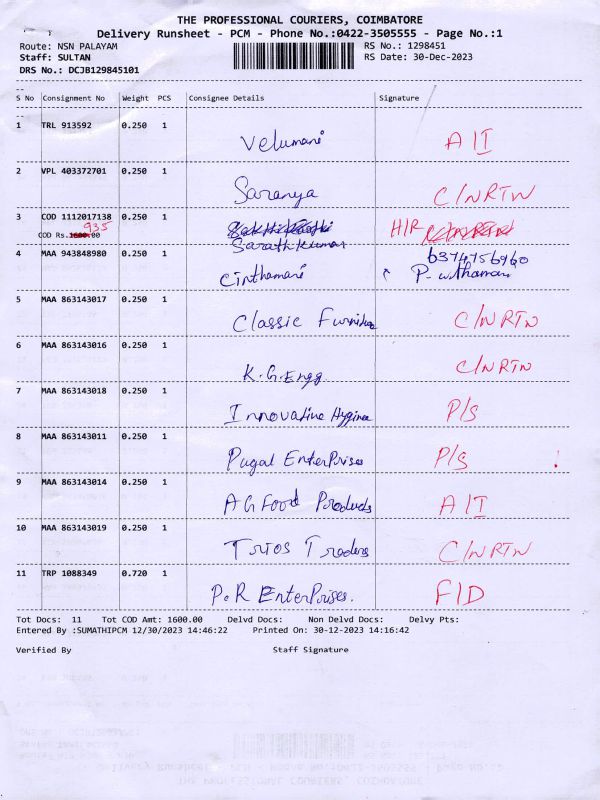 THE PROFESSIONAL COURIERS, COIMBATORE
Delivery Runsheet - PCM - Phone No.:0422-3505555 - Page No.:1
Route: NSN PALAYAM RS No.: 1298451
Staff: SULTAN RS Date: 30-Dec-2023
DRS No.: DCJB129845101
S No Consignment No Weight PCS Consignee Details Signature
1 TRL 913592 0.250 1 Velumani A II
2 VPL 403372701 0.250 1 Saranya C/NRTN
3 COD 1112017138 0.250 1 H/R
935
COD Rs.1600.00 Sarath Kumar
4 MAA 943848980 0.250 1 Cinthamani 6374756960
P.
5 MAA 863143017 0.250 1 Classic Furniture C/NRTN
6 MAA 863143016 0.250 1 K.G.Engg. C/NRTN
7 MAA 863143018 0.250 1 Innovative Hygiene P/S
8 MAA 863143011 0.250 1 Pugal EnterPrises P/S
9 MAA 863143014 0.250 1 AG Food Products A II
10 MAA 863143019 0.250 1 Trios Traders C/NRTN
11 TRP 1088349 0.720 1 P.R EnterPrises. F/D
Tot Docs: 11 Tot COD Amt: 1600.00 Delvd Docs: Non Delvd Docs: Delvy Pts:
Entered By :SUMATHIPCM 12/30/2023 14:46:22 Printed On: 30-12-2023 14:16:42
Verified By Staff Signature